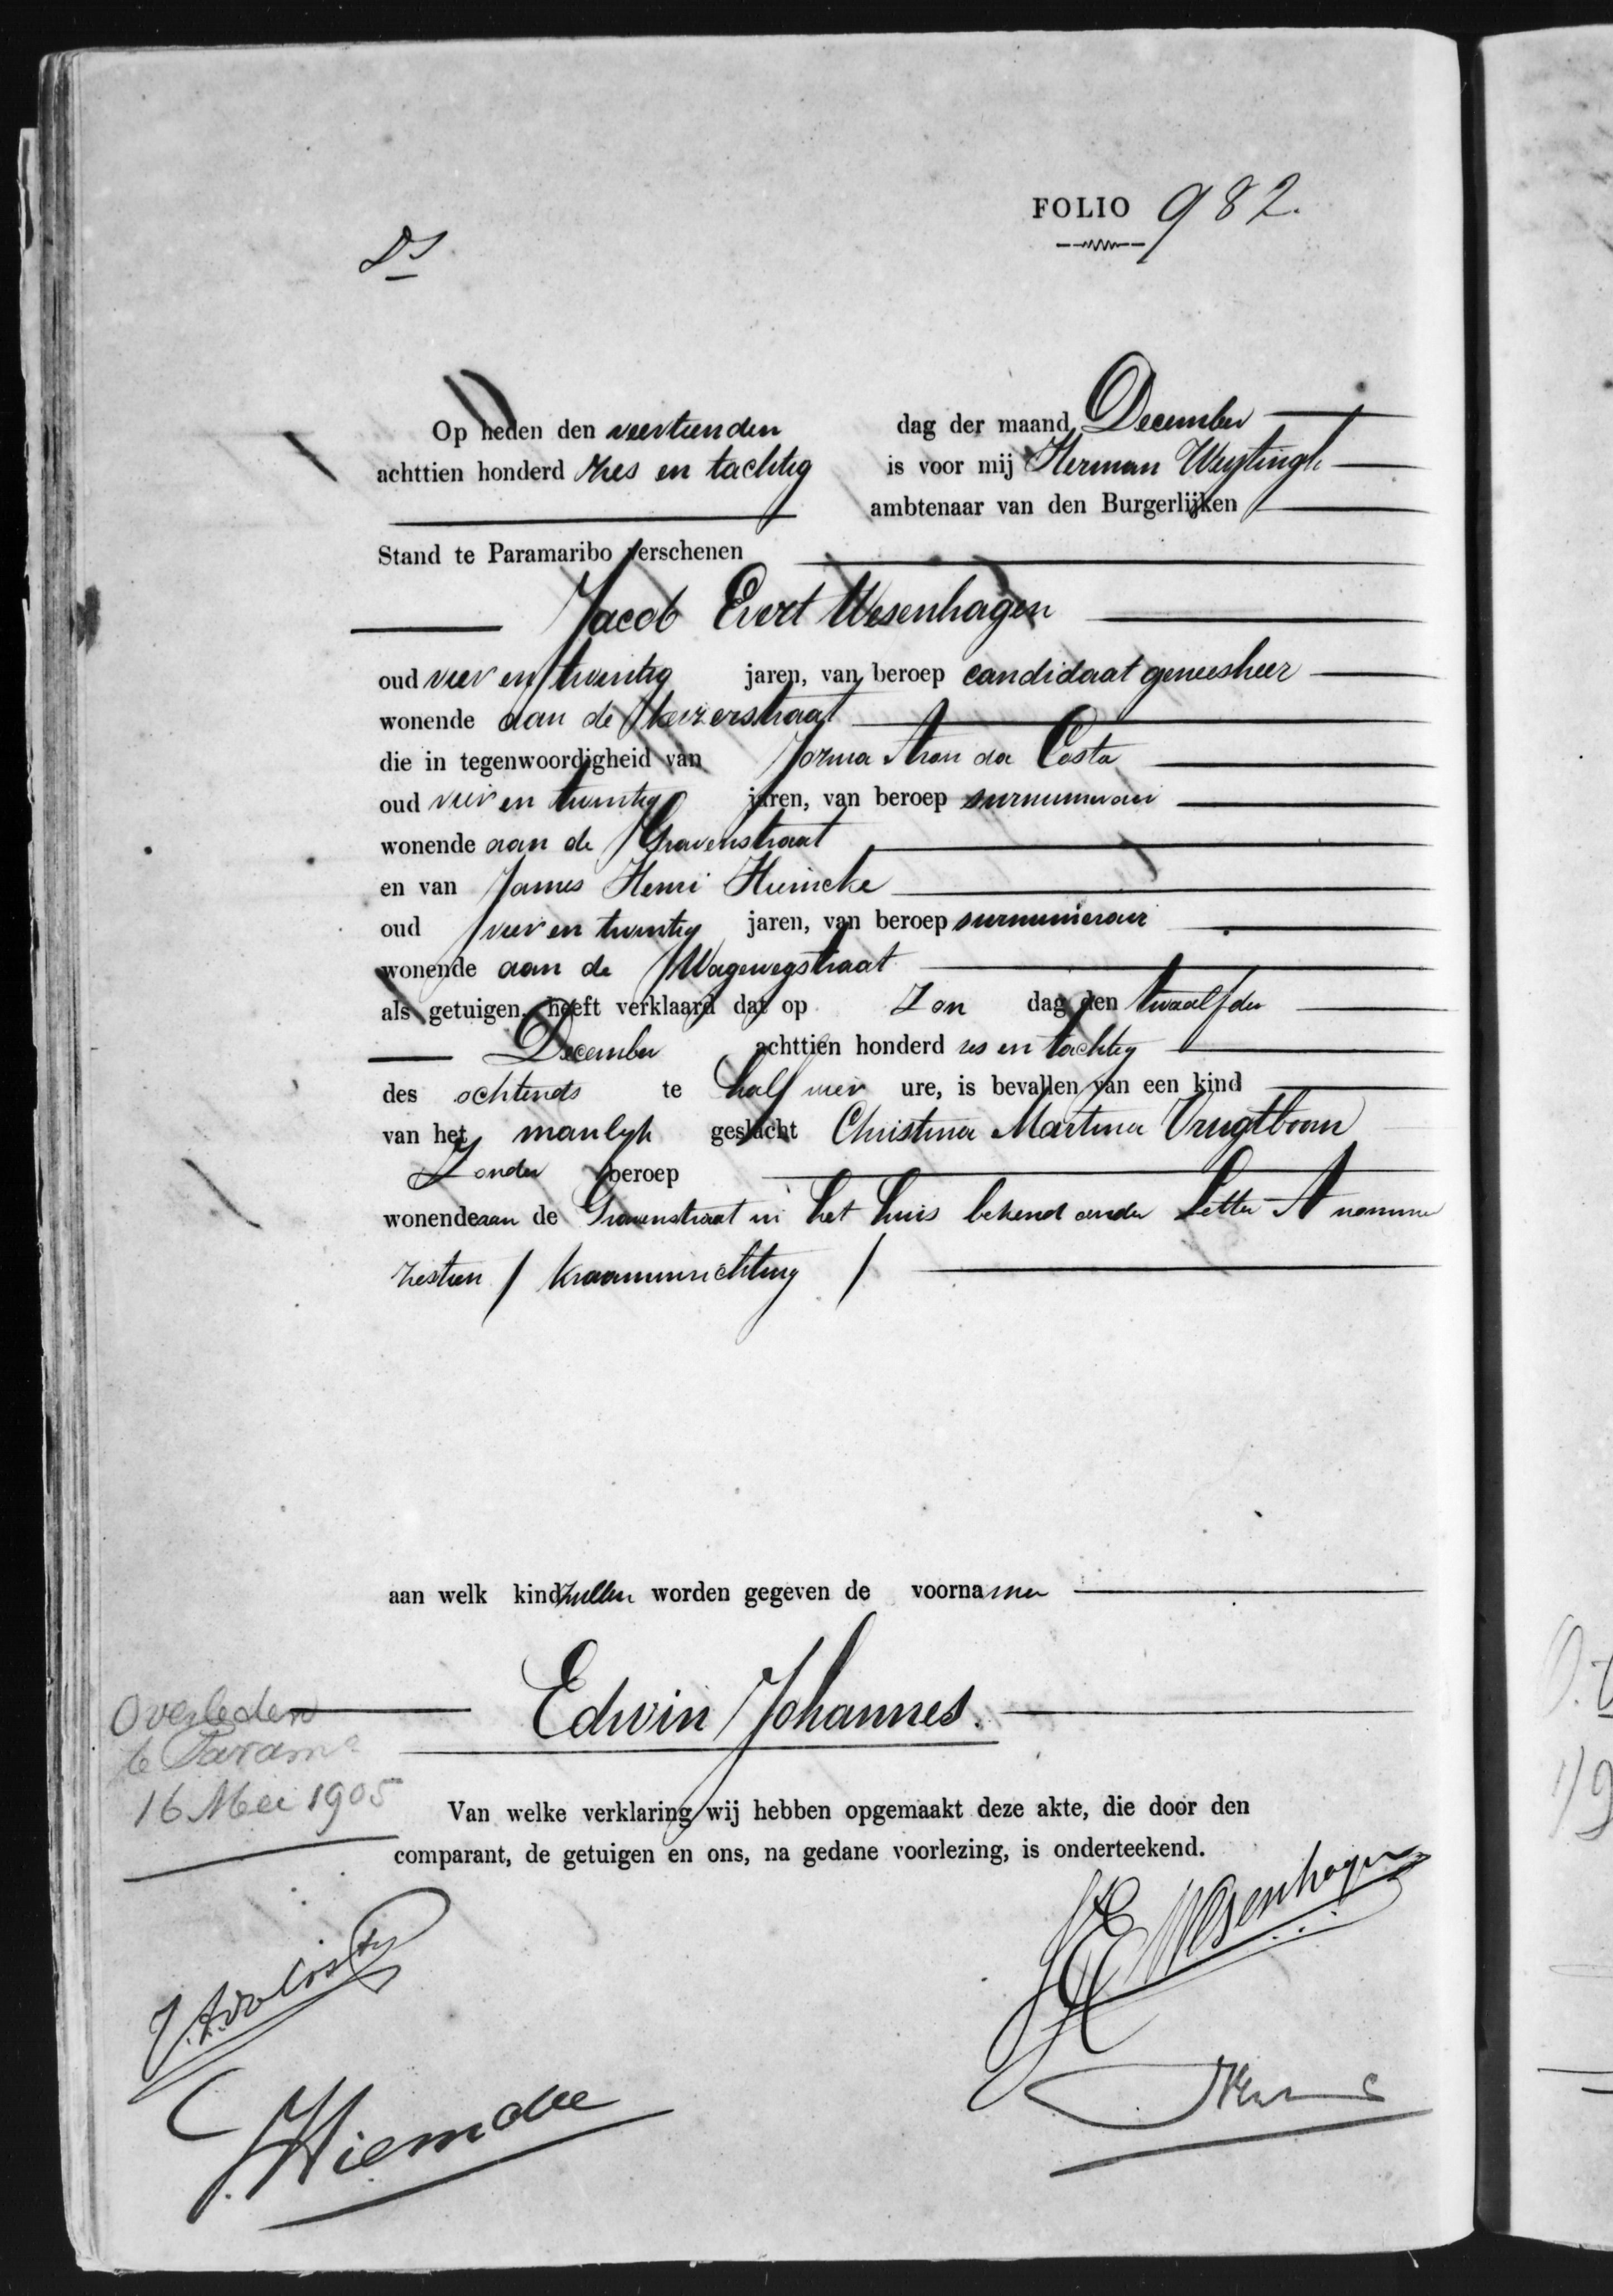 FOLIO 982.
Op heden den veertienden dag der maand December
achttien honderd zes en tachtig is voor mij Herman Weytingh
ambtenaar van den Burgerlijken
Stand te Paramaribo verschenen
Jacob Evert Wesenhagen
oud vier en twintig jaren, van beroep candidaat geneesheer
wonende aan de Keizerstraat
die in tegenwoordigheid van Aron da Costa
oud vier en twintig jaren, van beroep surnumerair
wonende aan de Gravenstraat
en van James Henri
oud vier en twintig jaren, van beroep surnumerair
wonende aan de Wagewegstraat
als getuigen, heeft verklaard dat op Zon dag den twaalfden
December achttien honderd zes en tachtig
des ochtends te half vier ure, is bevallen van een kind
van het manlyk geslacht Christina Martina Vrugtboom
Zonder beroep
wonende aan de Gravenstraat in het huis bekend onder Letter A nommer
zestien / kraaminrichting /
aan welk kind zullen worden gegeven de voornamen
Edwin Johannes.
Overleden
te Param°
16 Mei 1905
Van welke verklaring wij hebben opgemaakt deze akte, die door den
comparant, de getuigen en ons, na gedane voorlezing, is onderteekend.
JE Wesenhagen
J. A. da Costa